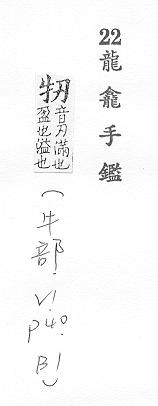 22龍龕手鑑
牣音刃滿也
盈也溢也
(牛部.V1.
P40.
B1)